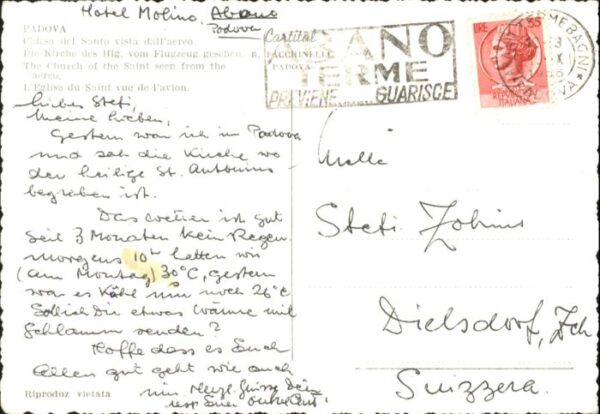 Hotel Molino. Abano
Padova
PADOVA
Chiesa del Santo vista dall'aereo.
Die Kirche des Hlg. vom Flugzeug gesehen.
The Church of the Saint seen from the
aereo.
L'Eglise du Saint vue de l'avion.
FACCHINELLI
PADOVA
ABANO
TERME
PREVIENE GUARISCE
LIRE 35
ITALIANA
Lieber Steti,
Meine Lieben,
Gestern war ich in Padova
und sah die Kirche wo
der heilige St. Antonius
begraben ist.
Das Wetter ist gut
seit 3 Monaten kein Regen.
Morgens 10h hatten wir
(am Montag) 30°C, gestern
war es kühl nur noch 26°C
Soll ich Dir etwas Wärme mit
Schlamm senden?
Hoffe dass es Euch
Allen gut geht wie auch
mir. Herzl. Grüsse Dein
resp. Euer
Steti Zobrins
Dielsdorf, Zch.
Suizzera.
Riproduz vietata